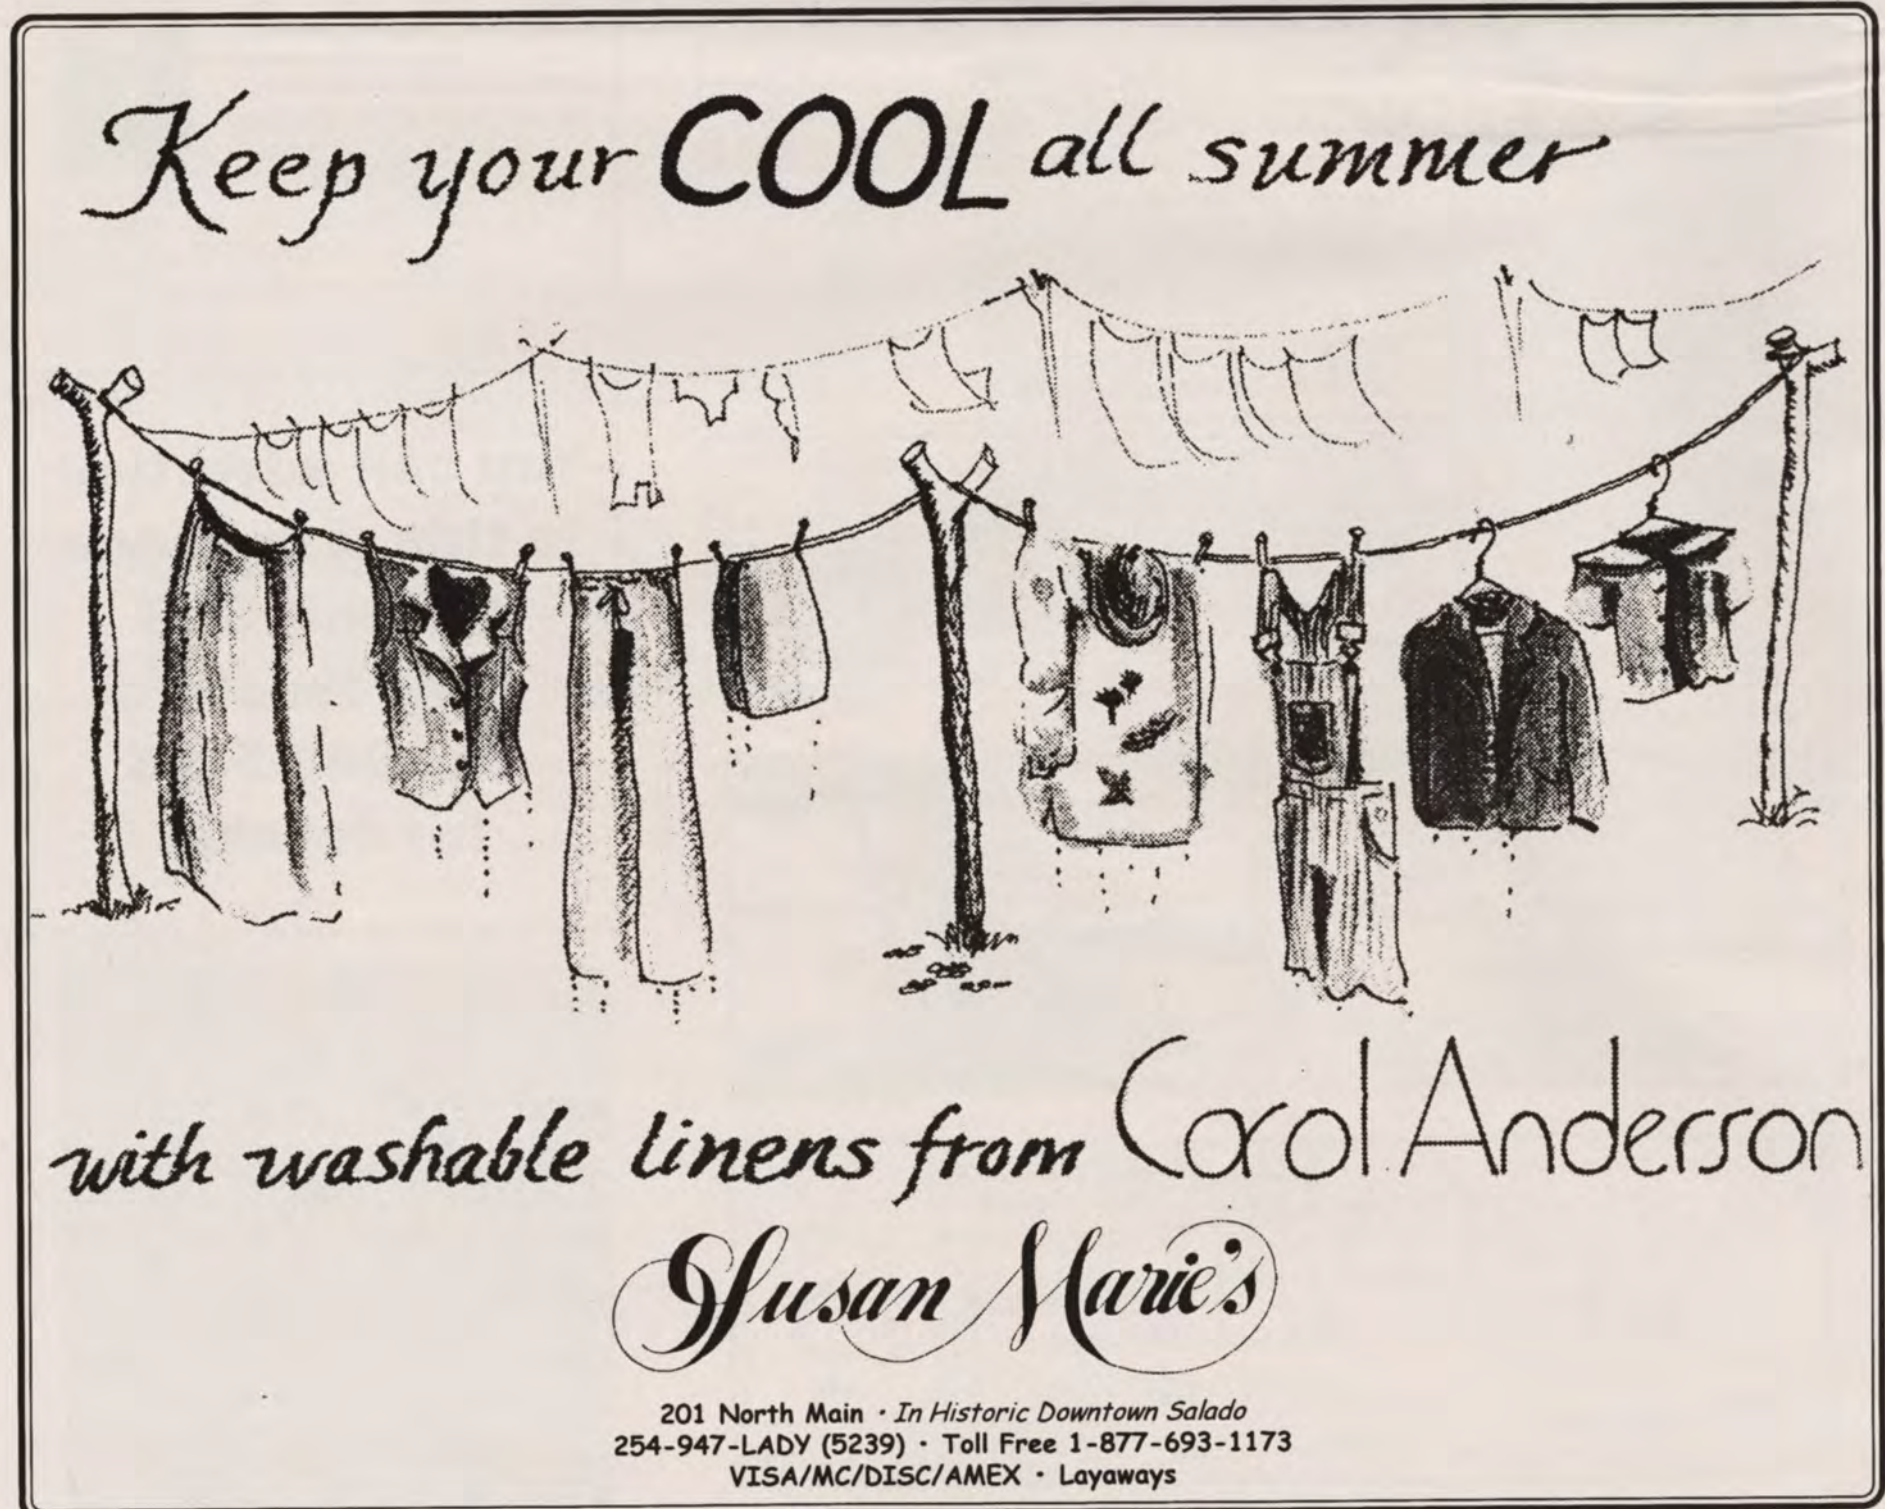 Keep your COOL all summer
with washable linens from Carol Anderson
Susan Marie's
201 North Main · In Historic Downtown Salado
254-947-LADY (5239) · Toll Free 1-877-693-1173
VISA/MC/DISC/AMEX · Layaways